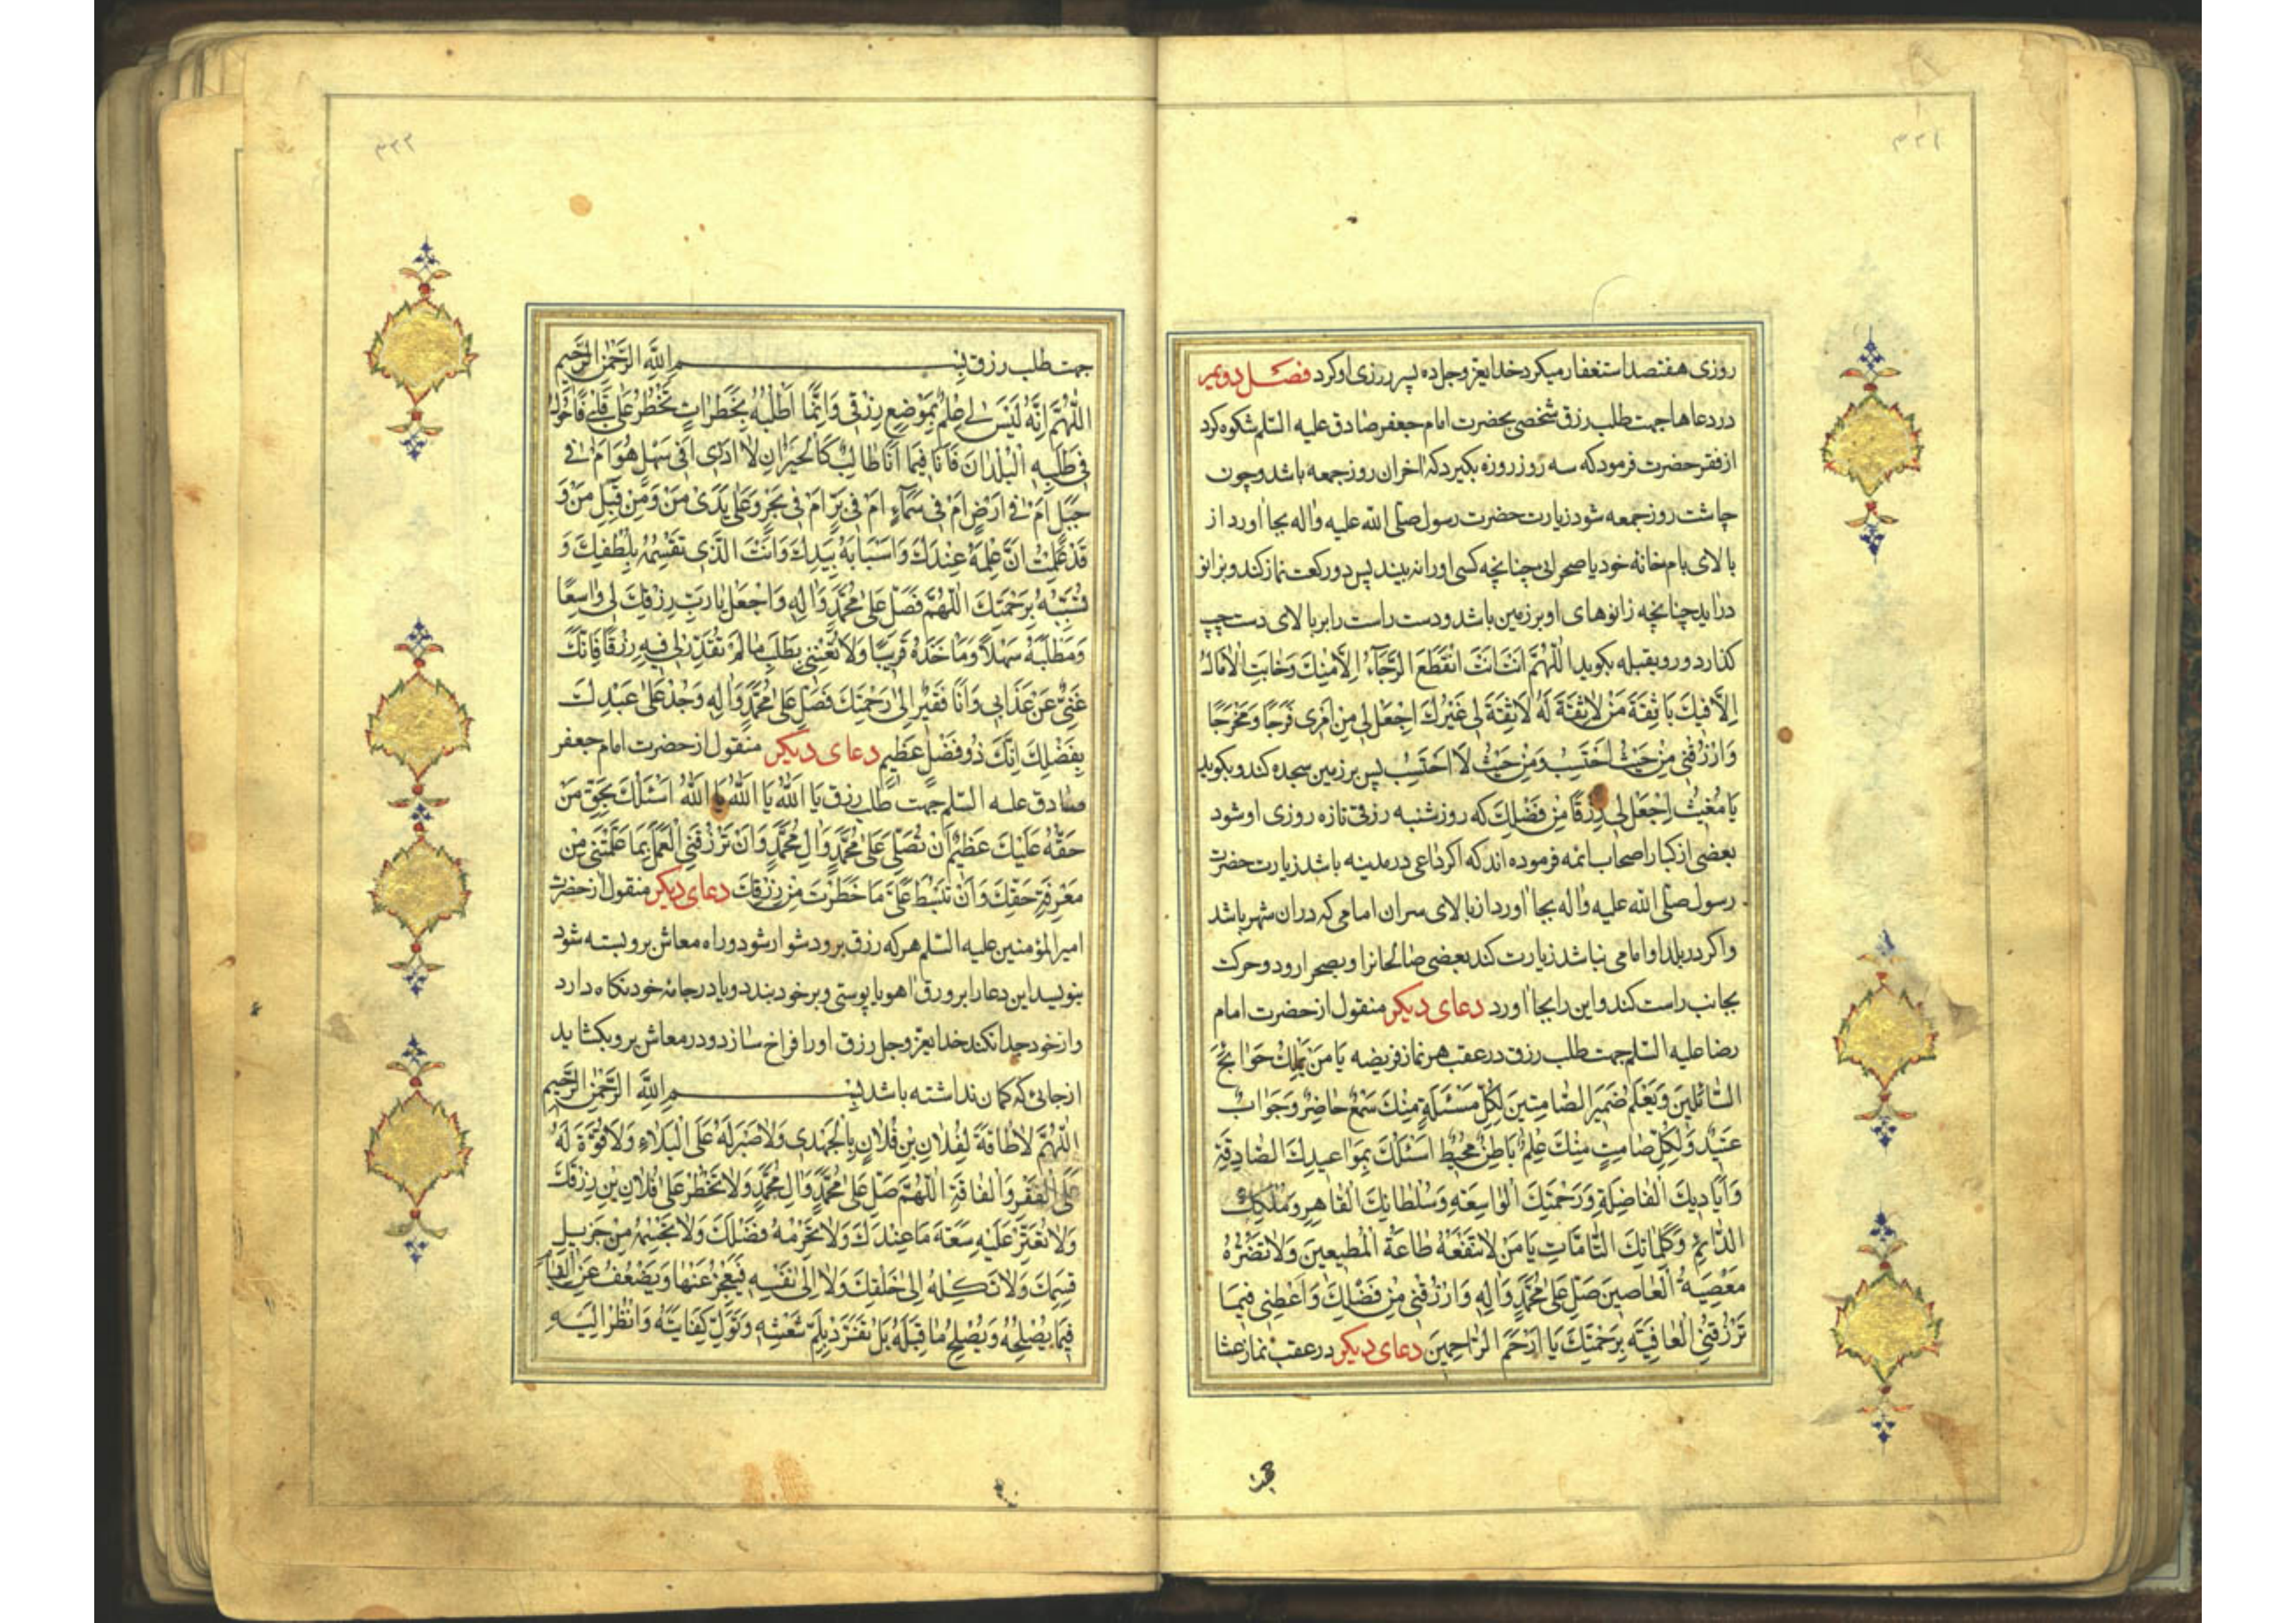 ۳۳۱
روزی هفتصد استغفار میکرد خدایعزوجل ده پسر روزی او کرد فصل دویم
در دعاها جهت طلب رزق شخصی بحضرت امام جعفر صادق علیه السلم شکوه کرد
از فقر حضرت فرمود که سه روز روزه بکیرد که اخران روز جمعه باشد و چون
چاشت روز جمعه شود زیارت حضرت رسول صلی الله علیه واله بجا اورد از
بالای بام خانه خود یا صحرائی چنانچه کسی اورا نه بیند پس دو رکعت نماز کند و بزانو
دراید چنانچه زانوهای او بر زمین باشد و دست راست را بر بالای دست چپ
کذارد و رو بقبله بکوید اللّٰهُمَّ اَنْتَ اَنْتَ انْقَطَعَ الرَّجٰاۤءُ اِلّاٰ مِنْكَ وَخٰابَتِ الْاٰمٰالُ
اِلّاٰ فيكَ يٰا ثِقَةَ مَنْ لاٰ ثِقَةَ لَهُ لاٰ ثِقَةَ لي غَيْرُكَ اجْعَلْ لي مِنْ اَمْري فَرَجًا وَمَخْرَجًا
وَارْزُقْني مِنْ حَيْثُ اَحْتَسِبُ وَمِنْ حَيْثُ لاٰ اَحْتَسِبُ پس بر زمین سجده کند و بکوید
يٰا مُغيثُ اِجْعَلْ لي رِزْقًا مِنْ فَضْلِكَ که روز شنبه رزقی تازه روزی او شود
بعضی از کبار اصحاب ائمه فرموده اند که اکر داعی در مدینه باشد زیارت حضرت
رسول صلی الله علیه واله بجا اورد از بالای سر ان امامی که در ان شهر باشد
واکر در بلد او امامی نباشد زیارت کند بعضی صالحانرا و بصحرا رود و حرکت
بجانب راست کند و این را بجا اورد دعای دیکر منقول از حضرت امام
رضا علیه السلم جهت طلب رزق در عقب هر نماز فریضه يٰا مَنْ يَمْلِكُ حَوٰاۤئِجَ
السّٰاۤئِلينَ وَيَعْلَمُ ضَميرَ الصّٰامِتينَ لِكُلِّ مَسْئَلَةٍ مِنْكَ سَمْعٌ حٰاضِرٌ وَجَوٰابٌ
عَتيدٌ وَلِكُلِّ صٰامِتٍ مِنْكَ عِلْمٌ بٰاطِنٌ مُحيطٌ اَسْئَلُكَ بِمَوٰاعيدِكَ الصّٰادِقَةِ
وَاَيٰاديكَ الْفٰاضِلَةِ وَرَحْمَتِكَ الْوٰاسِعَةِ وَسُلْطٰانِكَ الْقٰاهِرِ وَمُلْكِكَ
الدّٰاۤئِمِ وَكَلِمٰاتِكَ التّٰامّٰاتِ يٰا مَنْ لاٰ تَنْفَعُهُ طٰاعَةُ الْمُطيعينَ وَلاٰ تَضُرُّهُ
مَعْصِيَةُ الْعٰاصينَ صَلِّ عَلىٰ مُحَمَّدٍ وَاٰلِهِ وَارْزُقْني مِنْ فَضْلِكَ وَاَعْطِني فيمٰا
تَرْزُقُني الْعٰافِيَةَ بِرَحْمَتِكَ يٰا اَرْحَمَ الرّٰاحِمينَ دعای دیکر در عقب نماز عشا
جهت
۳۳۲
جهت طلب رزق بِسْمِ اللّٰهِ الرَّحْمٰنِ الرَّحيمِ
اَللّٰهُمَّ اِنَّهُ لَيْسَ لي عِلْمٌ بِمَوْضِعِ رِزْقي وَاِنَّمٰا اَطْلُبُهُ بِخَطَرٰاتٍ تَخْطُرُ عَلىٰ قَلْبي فَاَجُولُ
في طَلَبِهِ الْبُلْدٰانَ فَاَنَا فيمٰا اَنَا طٰالِبٌ كَالْحَيْرٰانِ لاٰ اَدْري اَفي سَهْلٍ هُوَ اَمْ في
جَبَلٍ اَمْ في اَرْضٍ اَمْ في سَمٰاۤءٍ اَمْ في بَرٍّ اَمْ في بَحْرٍ وَعَلىٰ يَدَيْ مَنْ وَمِنْ قِبَلِ مَنْ وَ
قَدْ عَلِمْتُ اَنَّ عِلْمَهُ عِنْدَكَ وَاَسْبٰابَهُ بِيَدِكَ وَاَنْتَ الَّذي تَقْسِمُهُ بِلُطْفِكَ وَ
تُسَبِّبُهُ بِرَحْمَتِكَ اللّٰهُمَّ فَصَلِّ عَلىٰ مُحَمَّدٍ وَاٰلِهِ وَاجْعَلْ يٰا رَبِّ رِزْقَكَ لي وٰاسِعًا
وَمَطْلَبَهُ سَهْلاً وَمَاْخَذَهُ قَريبًا وَلاٰ تُعَنِّني بِطَلَبِ مٰا لَمْ تُقَدِّرْ لي فيهِ رِزْقًا فَاِنَّكَ
غَنِيٌّ عَنْ عَذٰابي وَاَنَا فَقيرٌ اِلىٰ رَحْمَتِكَ فَصَلِّ عَلىٰ مُحَمَّدٍ وَاٰلِهِ وَجُدْ عَلىٰ عَبْدِكَ
بِفَضْلِكَ اِنَّكَ ذُو فَضْلٍ عَظيمٍ دعای دیکر منقول از حضرت امام جعفر
صادق علیه السلم جهت طلب رزق يٰا اَللّٰهُ يٰا اَللّٰهُ يٰا اَللّٰهُ اَسْئَلُكَ بِحَقِّ مَنْ
حَقُّهُ عَلَيْكَ عَظيمٌ اَنْ تُصَلِّيَ عَلىٰ مُحَمَّدٍ وَاٰلِ مُحَمَّدٍ وَاَنْ تَرْزُقَنِي الْعَمَلَ بِمٰا عَلَّمْتَني مِنْ
مَعْرِفَةِ حَقِّكَ وَاَنْ تَبْسُطَ عَلَيَّ مٰا حَظَرْتَ مِنْ رِزْقِكَ دعای دیکر منقول از حضرت
امیر المؤمنین علیه السلم هر که رزق برو دشوار شود و راه معاش برو بسته شود
بنویسد این دعا را بر ورق اهو یا پوستی و بر خود بندد و یا در جامهٔ خود نکاه دارد
و از خود جدا نکند خدایعزوجل رزق اورا فراخ سازد و در معاش برو بکشاید
ازجائی که کمان نداشته باشد بِسْمِ اللّٰهِ الرَّحْمٰنِ الرَّحيمِ
اَللّٰهُمَّ لاٰ طٰاقَةَ لِفُلاٰنِ بْنِ فُلاٰنٍ بِالْجَهْدِ وَلاٰ صَبْرَ لَهُ عَلَى الْبَلاٰۤءِ وَلاٰ قُوَّةَ لَهُ
عَلَى الْفَقْرِ وَالْفٰاقَةِ اللّٰهُمَّ صَلِّ عَلىٰ مُحَمَّدٍ وَاٰلِ مُحَمَّدٍ وَلاٰ تَحْظُرْ عَلىٰ فُلاٰنِ بْنِ رِزْقَكَ
وَلاٰ تَقْتُرْ عَلَيْهِ سَعَةَ مٰا عِنْدَكَ وَلاٰ تَحْرِمْهُ فَضْلَكَ وَلاٰ تَحْسِمْهُ مِنْ جَزيلِ
قِسَمِكَ وَلاٰ تَكِلْهُ اِلىٰ خَلْقِكَ وَلاٰ اِلىٰ نَفْسِهِ فَيَعْجِزَ عَنْهٰا وَيَضْعُفَ عَنِ الْقِيٰامِ
فيمٰا يُصْلِحُهُ وَيُصْلِحُ مٰا قِبَلَهُ بَلْ تَفَرَّدْ بِلَمِّ شَعَثِهِ وَتَوَلِّ كِفٰايَتَهُ وَانْظُرْ اِلَيْهِ